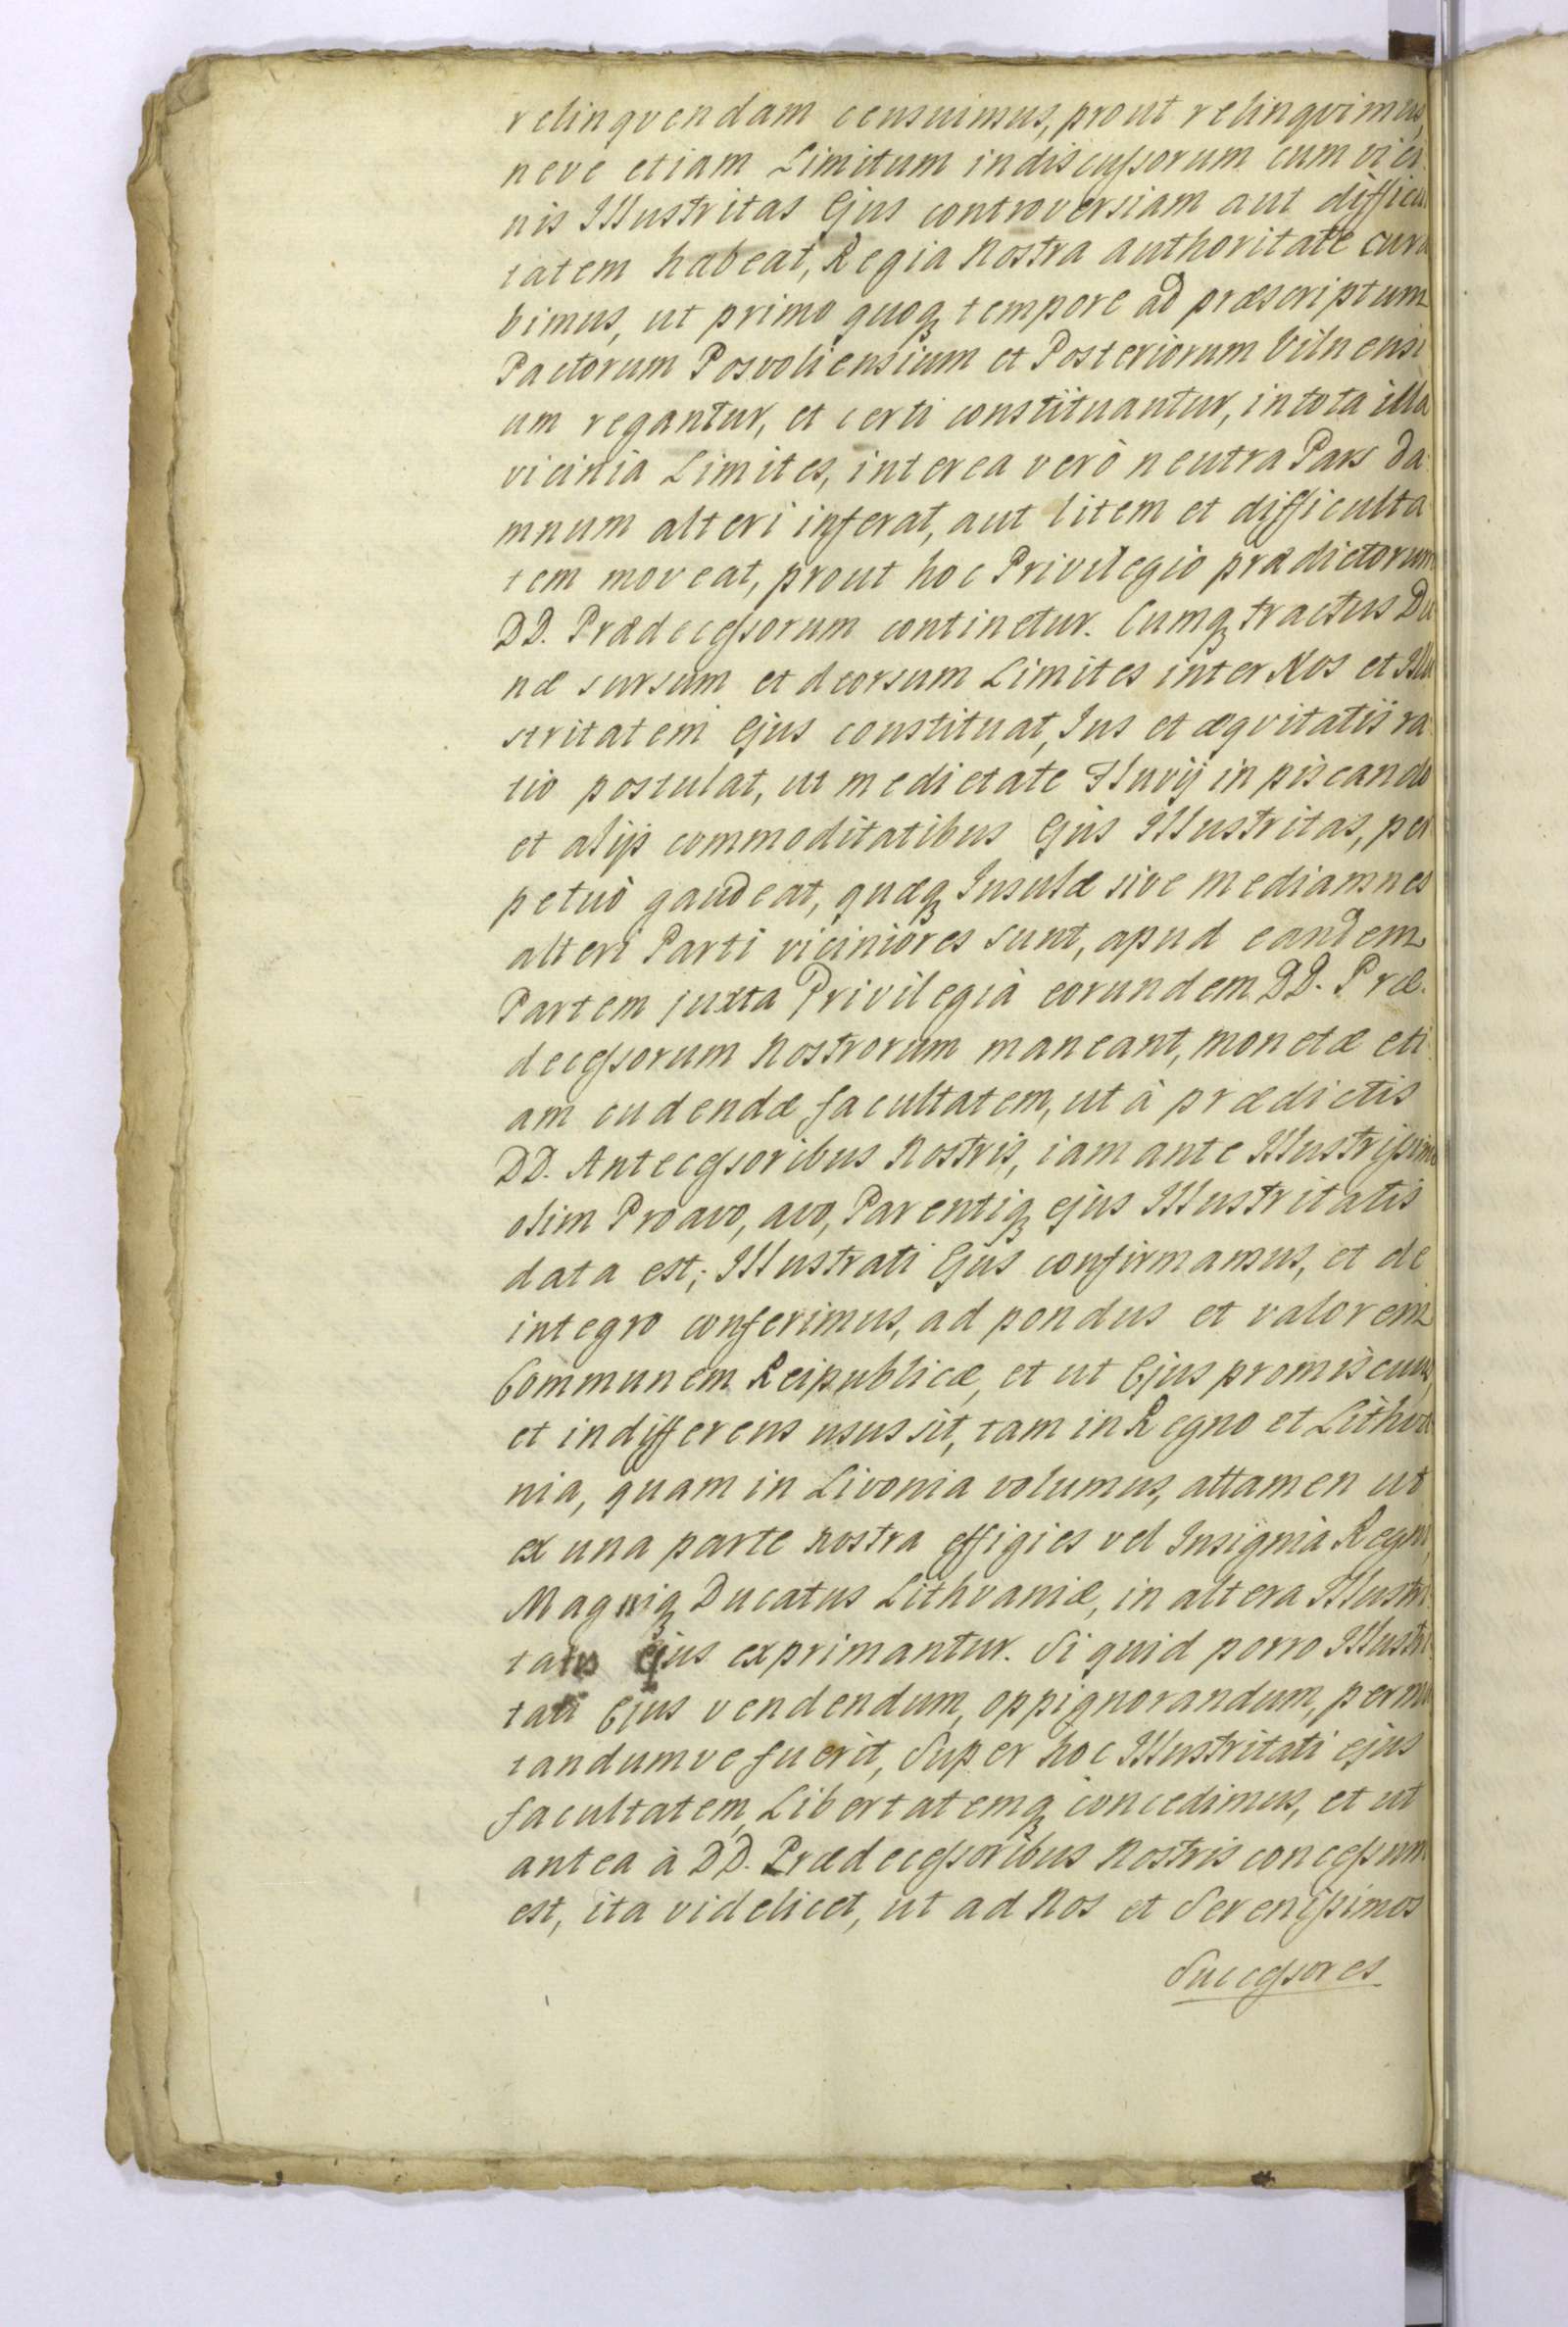 relinqvendam censuimus, prout relinqvimus,
neve etiam Limitum indiscussorum cum vici
nis Illustritas Ejus controversiam aut difficul
tatem habeat, Regia Nostra authoritate cura
bimus, ut primo quoq tempore ad præscriptum
Pactorum Posvoliensium et Posteriorum Vilnensi
um regantur, et certi constituantur, in tota illa
vicinia Limites, interea verò neutra Pars da
mnum alteri inferat, aut litem et difficulta
tem moveat, prout hoc Privilegio prædictorum
DD. Prædecessorum continetur. Cumq tractus Du
næ sursum et deorsum Limites inter Nos et Illu
stritatem Ejus constituat, Jus et æqvitatis ra
tio postulat, ut medietate Fluvij in piscando
et alijs commoditatibus Ejus Illustritas, per
petuò gaudeat, quæq Insulæ sive mediamnes
alteri Parti viciniores sunt, apud eandem
Partem juxta Privilegia eorundem DD. Præ
decessorum Nostrorum maneant, monetæ eti
am cudendæ facultatem, ut à prædictis
DD. Antecessoribus Nostris, iam ante Illustrissimo
olim Proavo, avo, Parentiq ejus Illustritatis
data est; Illustrati Ejus confirmamus, et de
integro conferimus, ad pondus et valorem
Communem Reipublicæ, et ut Ejus promiscuus,
et indifferens usus sit, tam in Regno et Lithva
nia, quam in Livonia volumus, attamen ut
ex una parte nostra effigies vel Insignia Regni,
Magniq Ducatus Lithvaniæ, in altera Illustri
tatis ejus exprimantur. Si quid porro Illustri
tati Ejus vendendum, oppignorandum, permu
tandumve fuerit, Super hoc Illustritati ejus
facultatem, Libertatemq concedimus, et ut
antea à DD. Prædecessoribus Nostris concessum
est, ita videlicet, ut ad Nos et Serenissimos
Successores